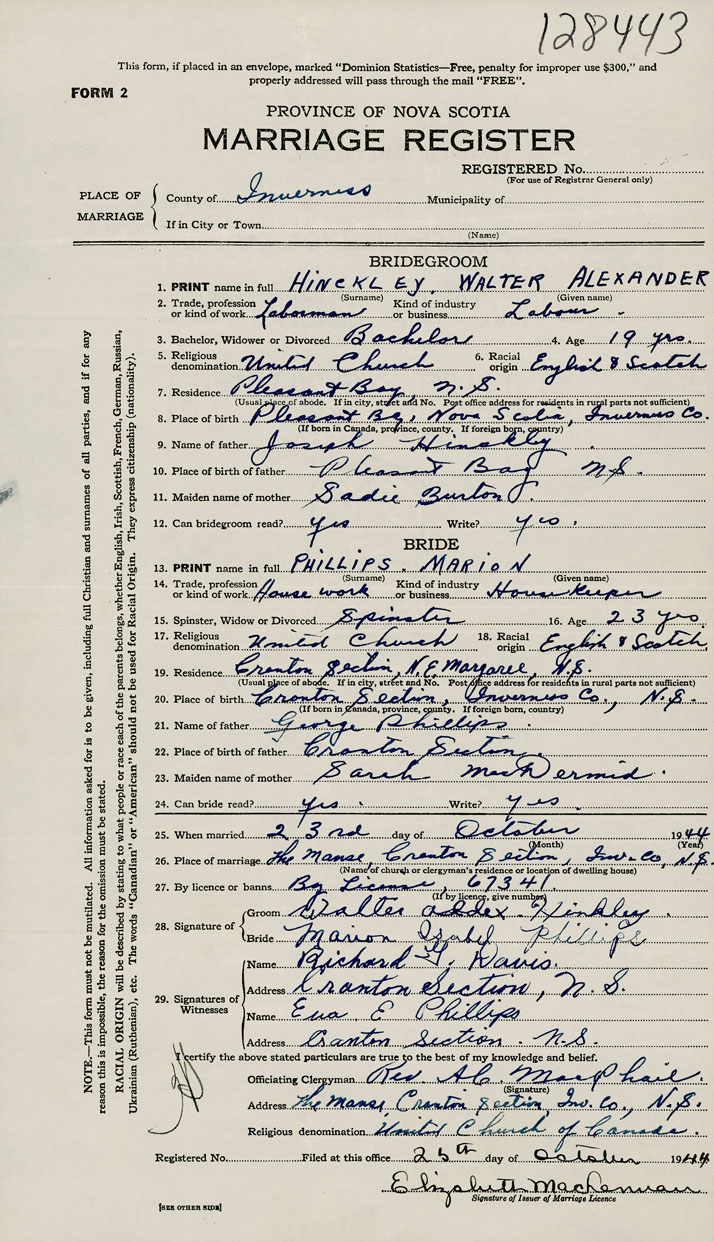 128443
This form, if placed in an envelope, marked "Dominion Statistics—Free, penalty for improper use $300," and
properly addressed will pass through the mail "FREE".
FORM 2
PROVINCE OF NOVA SCOTIA
MARRIAGE REGISTER
REGISTERED No.
(For use of Registrar General only)
PLACE OF MARRIAGE
County of Inverness Municipality of
If in City or Town
(Name)
BRIDEGROOM
1. PRINT name in full HINCKLEY, WALTER ALEXANDER
(Surname) (Given name)
2. Trade, profession or kind of work Laborman Kind of industry or business Labour.
3. Bachelor, Widower or Divorced Bachelor 4. Age 19 yrs.
5. Religious denomination United Church 6. Racial origin English & Scotch
7. Residence Pleasant Bay, N.S.
(Usual place of abode. If in city, street and No. Post office address for residents in rural parts not sufficient)
8. Place of birth Pleasant Bay, Nova Scotia, Inverness Co.
(If born in Canada, province, county. If foreign born, country)
9. Name of father Joseph Hinckley.
10. Place of birth of father Pleasant Bay N.S.
11. Maiden name of mother Sadie Burton.
12. Can bridegroom read? yes Write? yes.
BRIDE
13. PRINT name in full PHILLIPS. MARION
(Surname) (Given name)
14. Trade, profession or kind of work House work Kind of industry or business Housekeeper
15. Spinster, Widow or Divorced Spinster 16. Age 23 yrs
17. Religious denomination United Church 18. Racial origin English & Scotch
19. Residence Cranton Section, N.E. Margaree, N.S.
(Usual place of abode. If in city, street and No. Post office address for residents in rural parts not sufficient)
20. Place of birth Cranton Section, Inverness Co., N.S.
(If born in Canada, province, county. If foreign born, country)
21. Name of father George Phillips.
22. Place of birth of father Cranton Section.
23. Maiden name of mother Sarah MacDermid.
24. Can bride read? yes. Write? yes.
25. When married 23rd day of October 1944
(Month) (Year)
26. Place of marriage The Manse, Cranton Section, Inv. Co, N.S.
(Name of church or clergyman's residence or location of dwelling house)
27. By licence or banns. By License, 67341.
(If by licence, give number)
28. Signature of
Groom Walter Addex. Hinkley.
Bride Marion Isabel Phillips
29. Signatures of Witnesses
Name Richard G. Davis.
Address Cranton Section, N.S.
Name Eva E Phillips
Address Cranton Section. N.S.
I certify the above stated particulars are true to the best of my knowledge and belief.
Officiating Clergyman Rev. A.C. MacPhail.
(Signature)
Address The Manse, Cranton Section, Inv. Co., N.S.
Religious denomination United Church of Canada.
Registered No. Filed at this office 25th day of October 1944
Elizabeth MacLennan
Signature of Issuer of Marriage Licence
[SEE OTHER SIDE]
NOTE.—This form must not be mutilated. All information asked for is to be given, including full Christian and surnames of all parties, and if for any
reason this is impossible, the reason for the omission must be stated.
RACIAL ORIGIN will be described by stating to what people or race each of the parents belongs, whether English, Irish, Scottish, French, German, Russian,
Ukrainian (Ruthenian), etc. The words "Canadian" or "American" should not be used for Racial Origin. They express citizenship (nationality).